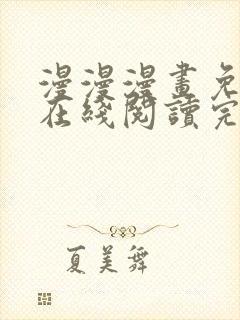 漫漫漫畫免
在綫閱讀完
夏美舞